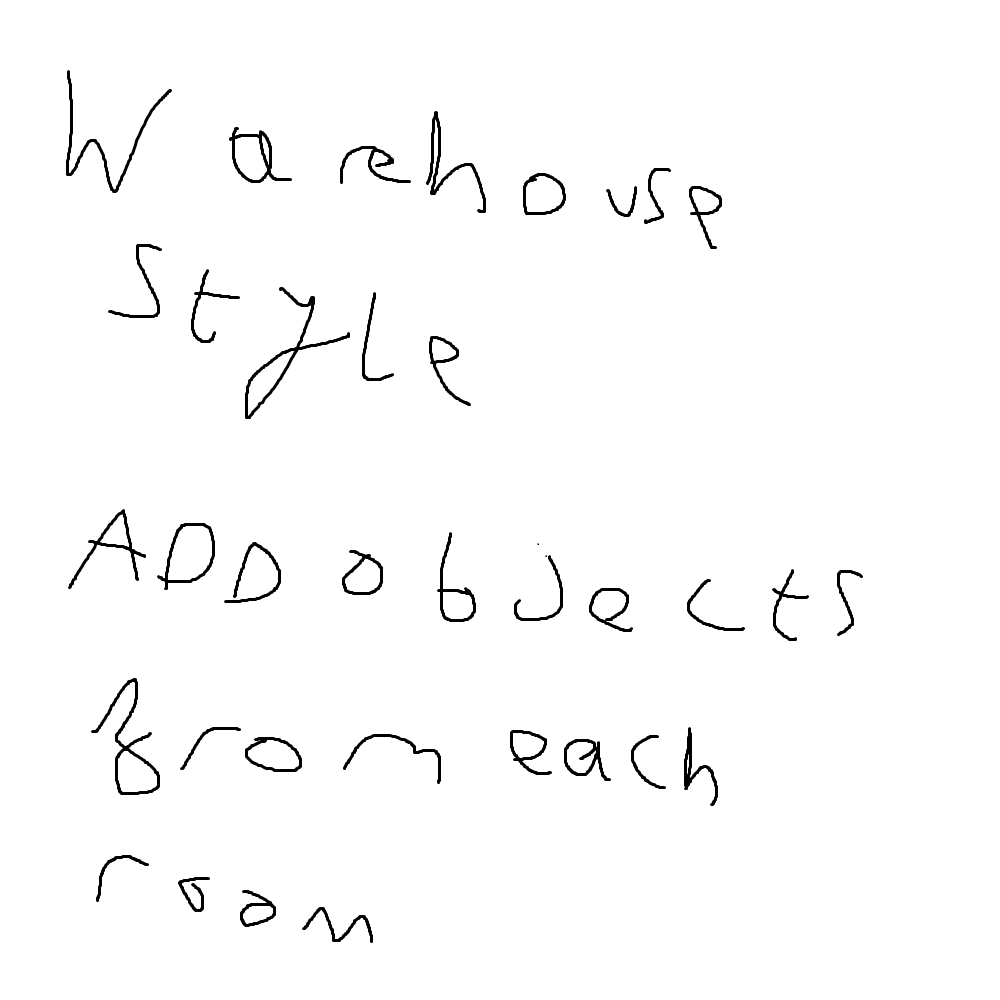 Warehouse
Style
ADD objects
from each
room